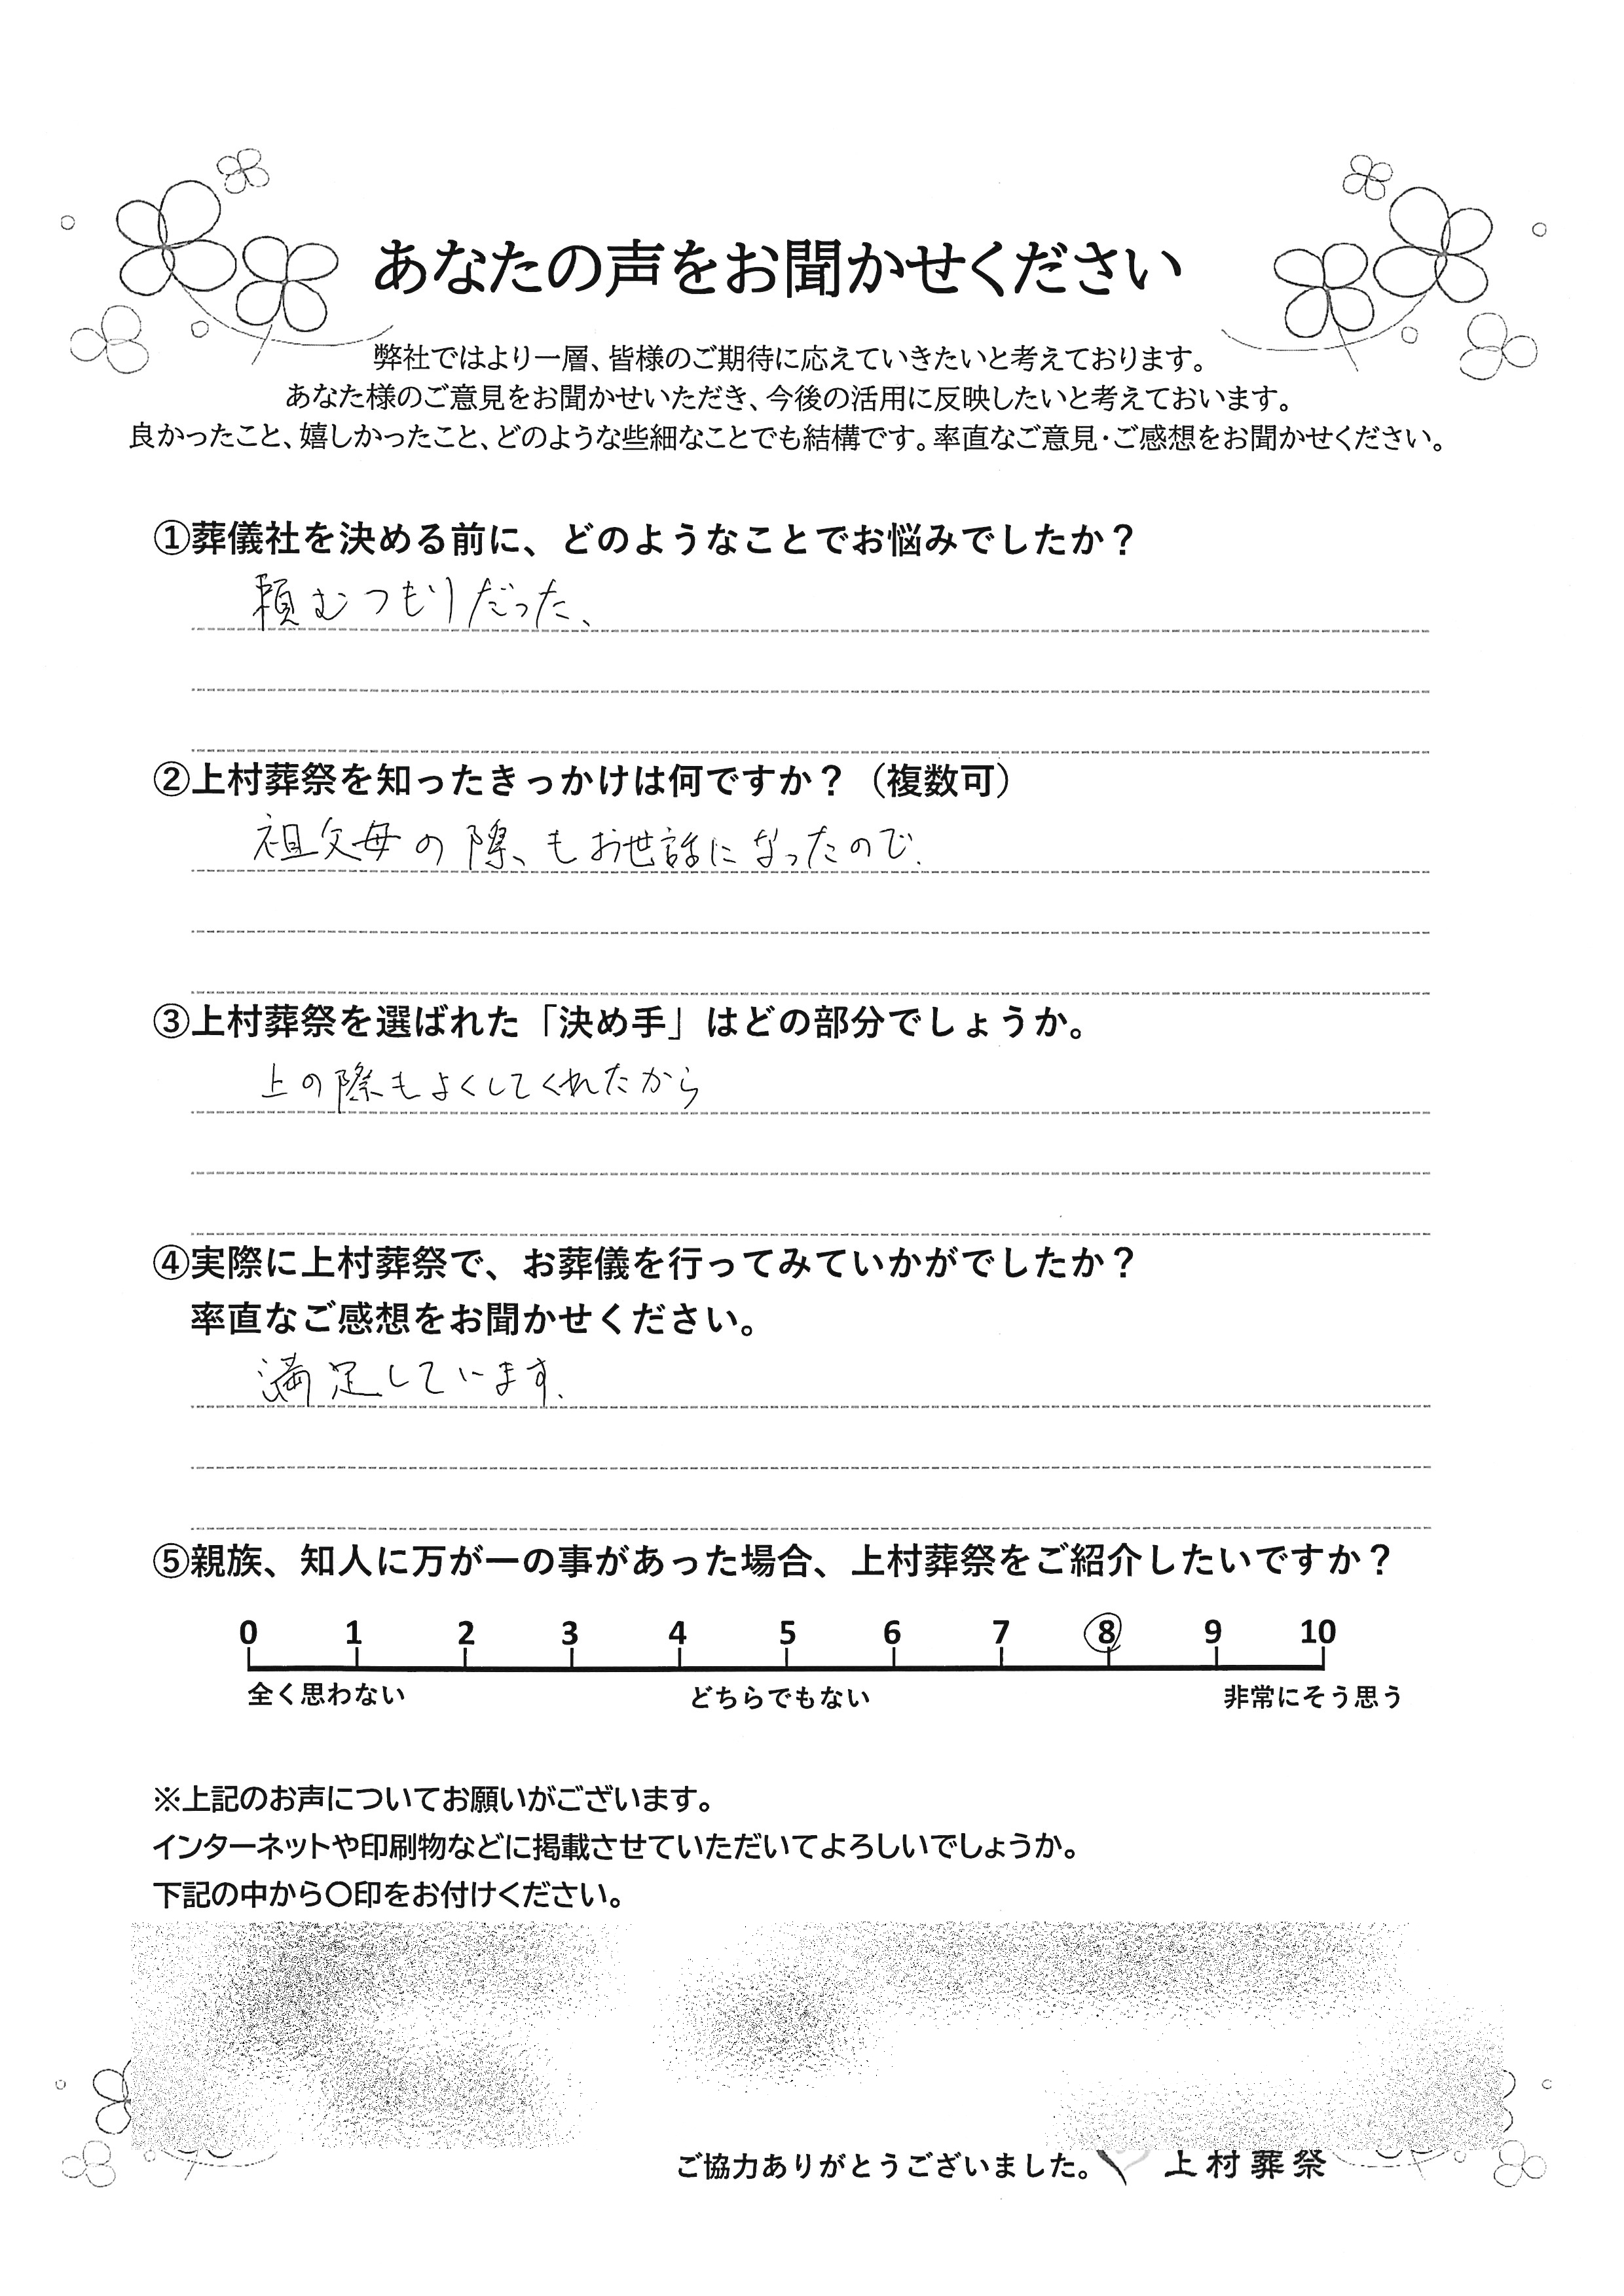 あなたの声をお聞かせください
弊社ではより一層、皆様のご期待に応えていきたいと考えております。
あなた様のご意見をお聞かせいただき、今後の活用に反映したいと考えておいます。
良かったこと、嬉しかったこと、どのような些細なことでも結構です。率直なご意見・ご感想をお聞かせください。
①葬儀社を決める前に、どのようなことでお悩みでしたか？
頼むつもりだった、
②上村葬祭を知ったきっかけは何ですか？（複数可）
祖父母の際、もお世話になったので.
③上村葬祭を選ばれた「決め手」はどの部分でしょうか。
上の際もよくしてくれたから
④実際に上村葬祭で、お葬儀を行ってみていかがでしたか？
率直なご感想をお聞かせください。
満足しています.
⑤親族、知人に万が一の事があった場合、上村葬祭をご紹介したいですか？
0 1 2 3 4 5 6 7 8 9 10
全く思わない どちらでもない 非常にそう思う
※上記のお声についてお願いがございます。
インターネットや印刷物などに掲載させていただいてよろしいでしょうか。
下記の中から〇印をお付けください。
ご協力ありがとうございました。 上村葬祭